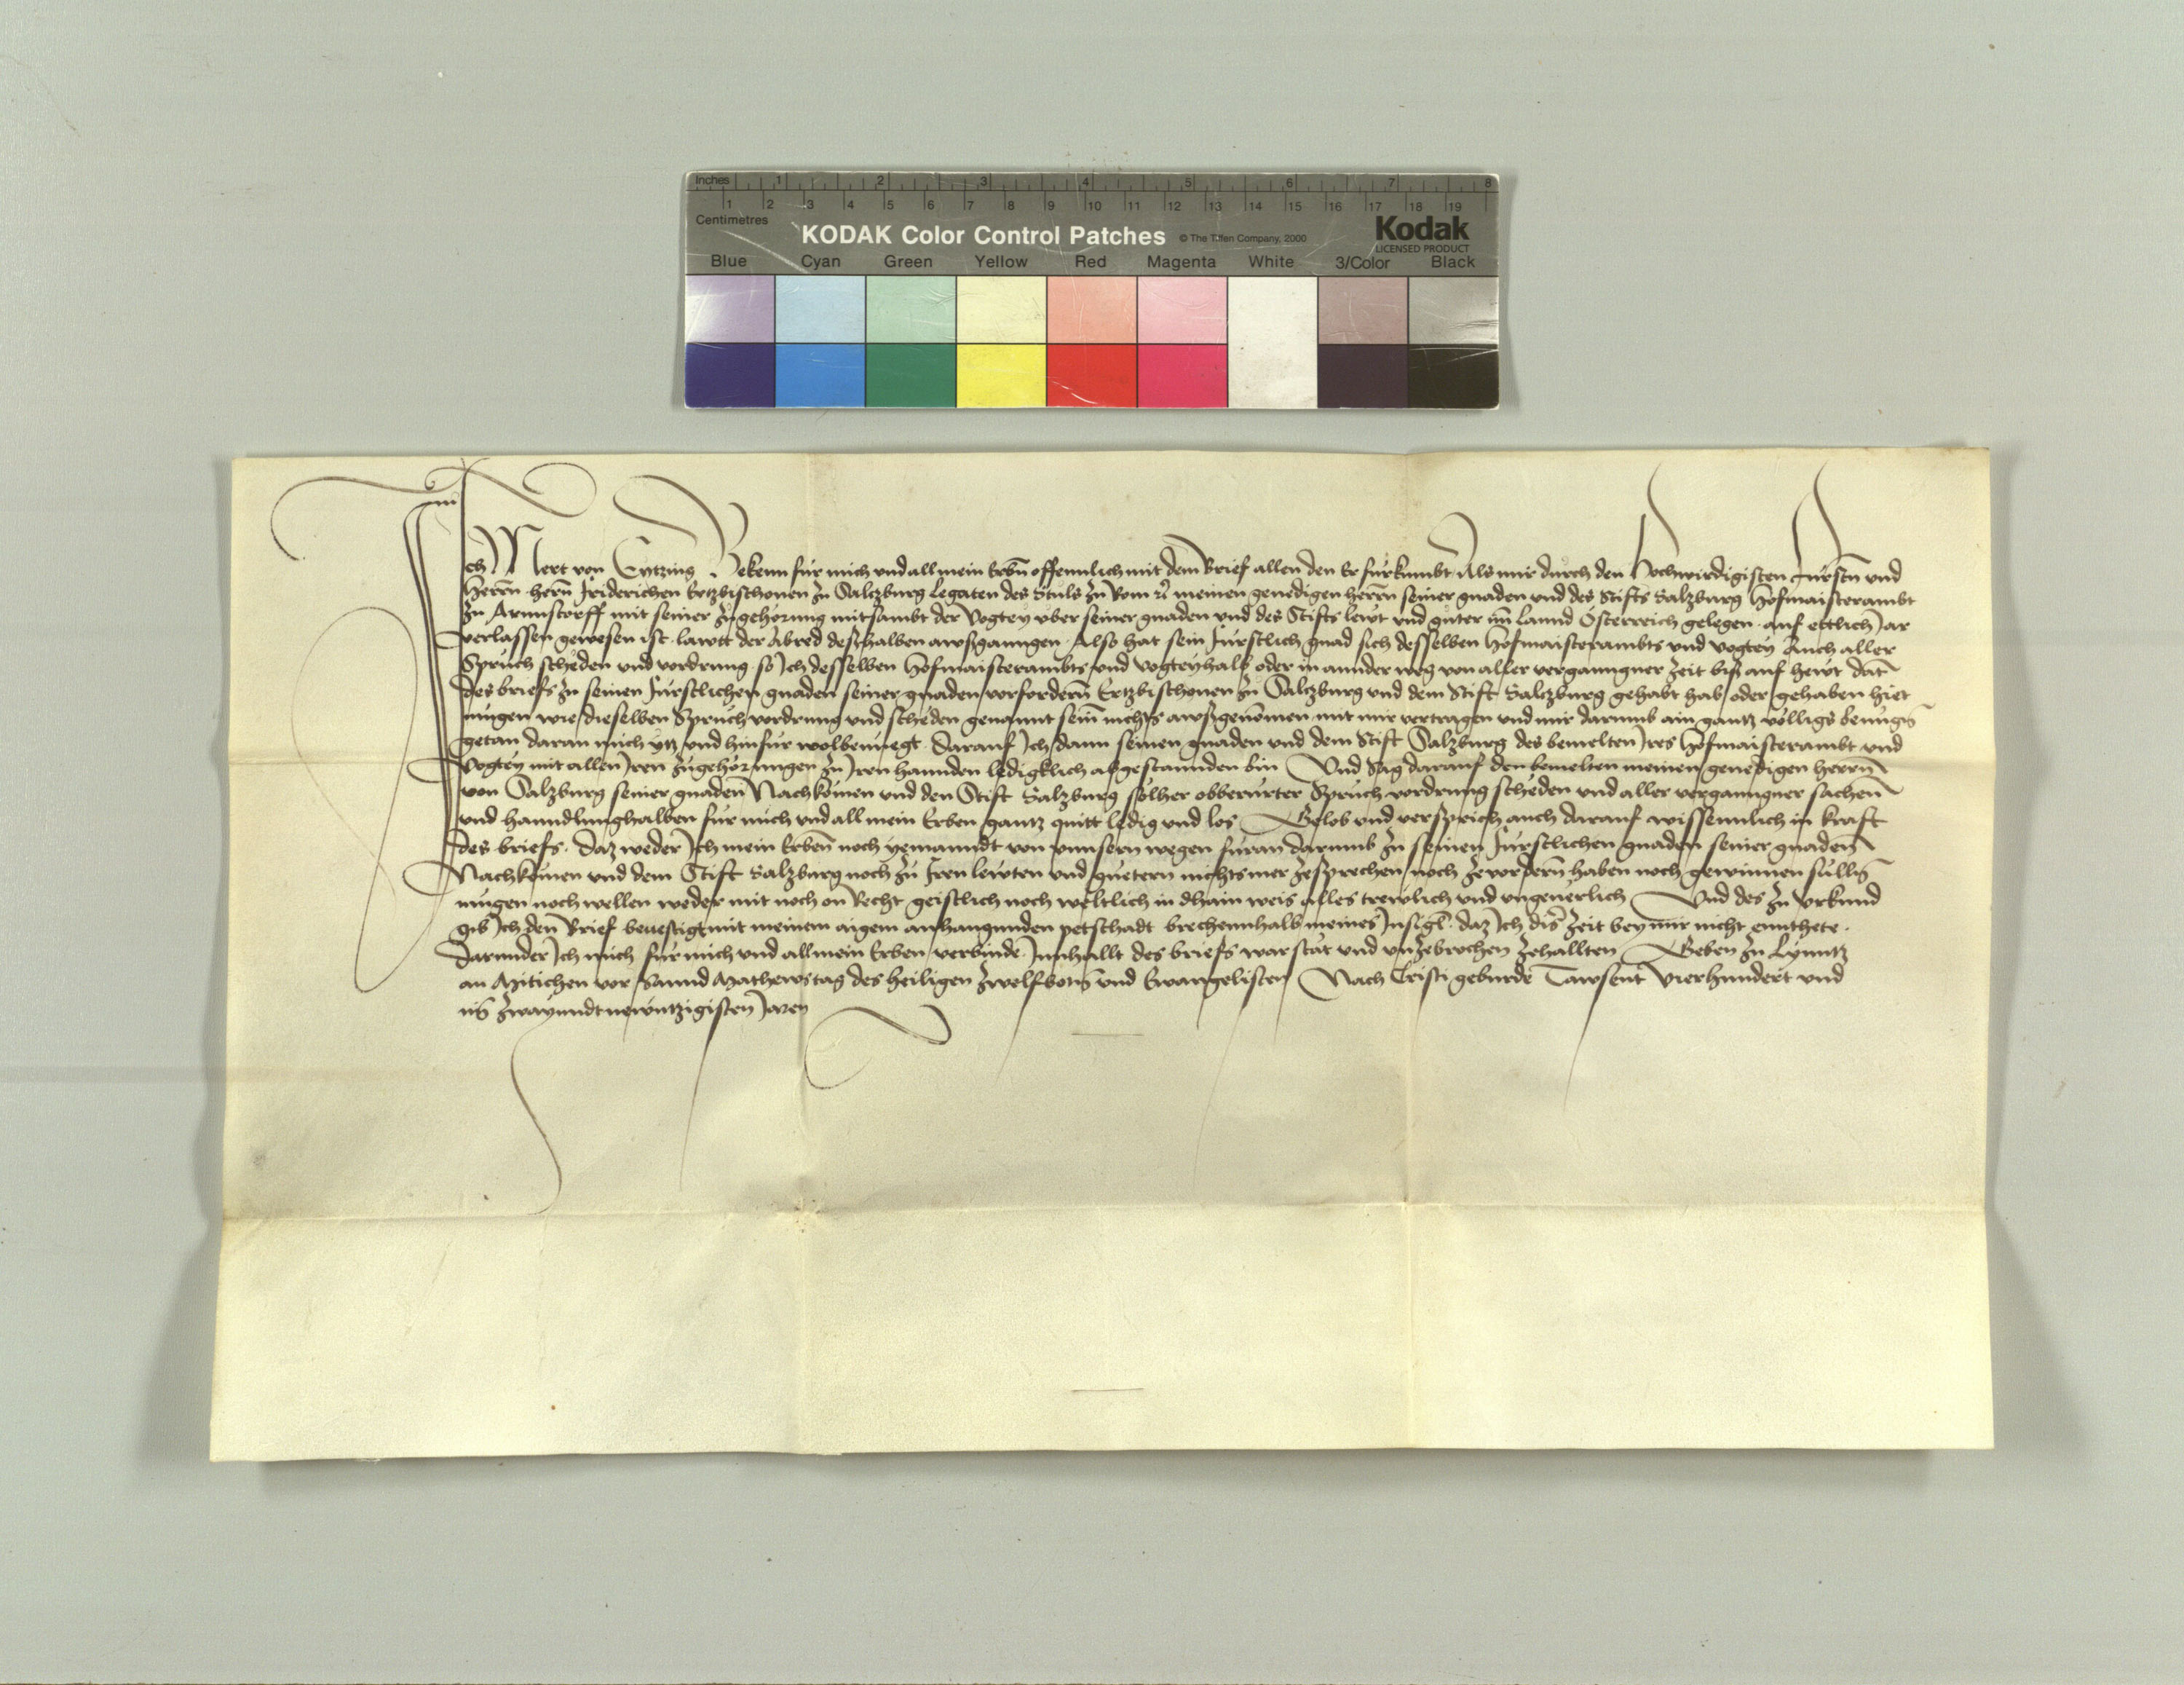 Inches 1 2 3 4 5 6 7 8
1 2 3 4 5 6 7 8 9 10 11 12 13 14 15 16 17 18 19
Centimetres
KODAK Color Control Patches © The Tiffen Company, 2000 Kodak
LICENSED PRODUCT
Blue Cyan Green Yellow Red Magenta White 3/Color Black
Ich Mert von Eytzing Bekenn fur mich und all mein Erbn̄ offennlich mit dem Brief allen den Er furkumbt Als mir durch den Hochwirdigisten Fursten und
Herrn hern Friderichen Ertzbischouen zu Salczburg Legaten des Stuls zu Rom meinen genedigen herrn seiner gnaden und des Stifts Salczburg Hofmaisterambt
zu Arnnstorff mit seiner zugehorung mitsambt der Vogtey uber seiner gnaden und des Stifts lewt und guter im Lannd Österreich gelegen auf ettlich Jar
verlassen gewesen ist lawtt der Abred deshalben awsganngen Also hat sein furstlich gnad sich desselben Hofmaisterambts und vogtey Auch aller
Spruch scheden und vordrung so Ich desselben Hofmaisterambts und vogteyhalb oder in annder weg von aller verganngner zeit bis auf hewt dat̄
des briefs zu seinen furstlichen gnaden seiner gnaden vorfordern Ertzbischouen zu Salczburg und dem Stift Salczburg gehabt hab oder gehaben hiet
mugen wie dieselben Spruch vordrung und scheden genannt sein nichts awsgenomen mit mir vertragen und mir darumb ain gantz volligs benugn̄
getan daran mich ytz und hinfur wolbenuegt Darauf Ich dann seinen gnaden und dem Stift Salczburg des bemelten Ires Hofmaisterambt und
Vogtey mit allen Iren zugehorungen zu Iren hannden ledigklich abgestannden bin Und Sag darauf den bemelten meinen genedigen herrn
von Salczburg seiner gnaden Nachkomen und den Stift Salczburg solher obberurter Spruch vordrung scheden und aller verganngner sachen
und hanndlunghalben fur mich und all mein Erben gantz quitt ledig und los Gelob und versprich auch darauf wissennlich in kraft
des briefs daz weder Ich mein Erben noch yemanndt von unnsern wegen furan darumb zu seinen furstlichen gnaden seiner gnaden
Nachkomen und dem Stift Salczburg noch zu Iren lewten und guetern nichts mer zesprechen noch zevordern haben noch gewinnen sullen
mugen noch wellen weder mit noch on Recht geistlich noch weltlich in dhain weis alles trewlich und ungeuerlich Und des zu Urkund
gib Ich den Brief beuestigt mit meinem aigem anhangunden petschadt brechennhalb meines Insigl daz Ich diser zeit bey mir nicht ennthete
Darunder Ich mich fur mich und all mein Erben verbinde Innhallt des briefs war stat und unzebrochen zehallten Geben zu Lynntz
an Mitichen vor Sannd Mathewstag des heiligen zwelfboten und Ewangelisten Nach Cristi geburde Tawsent Vierhundert und
im zwayunndtnewntzigisten Jaren